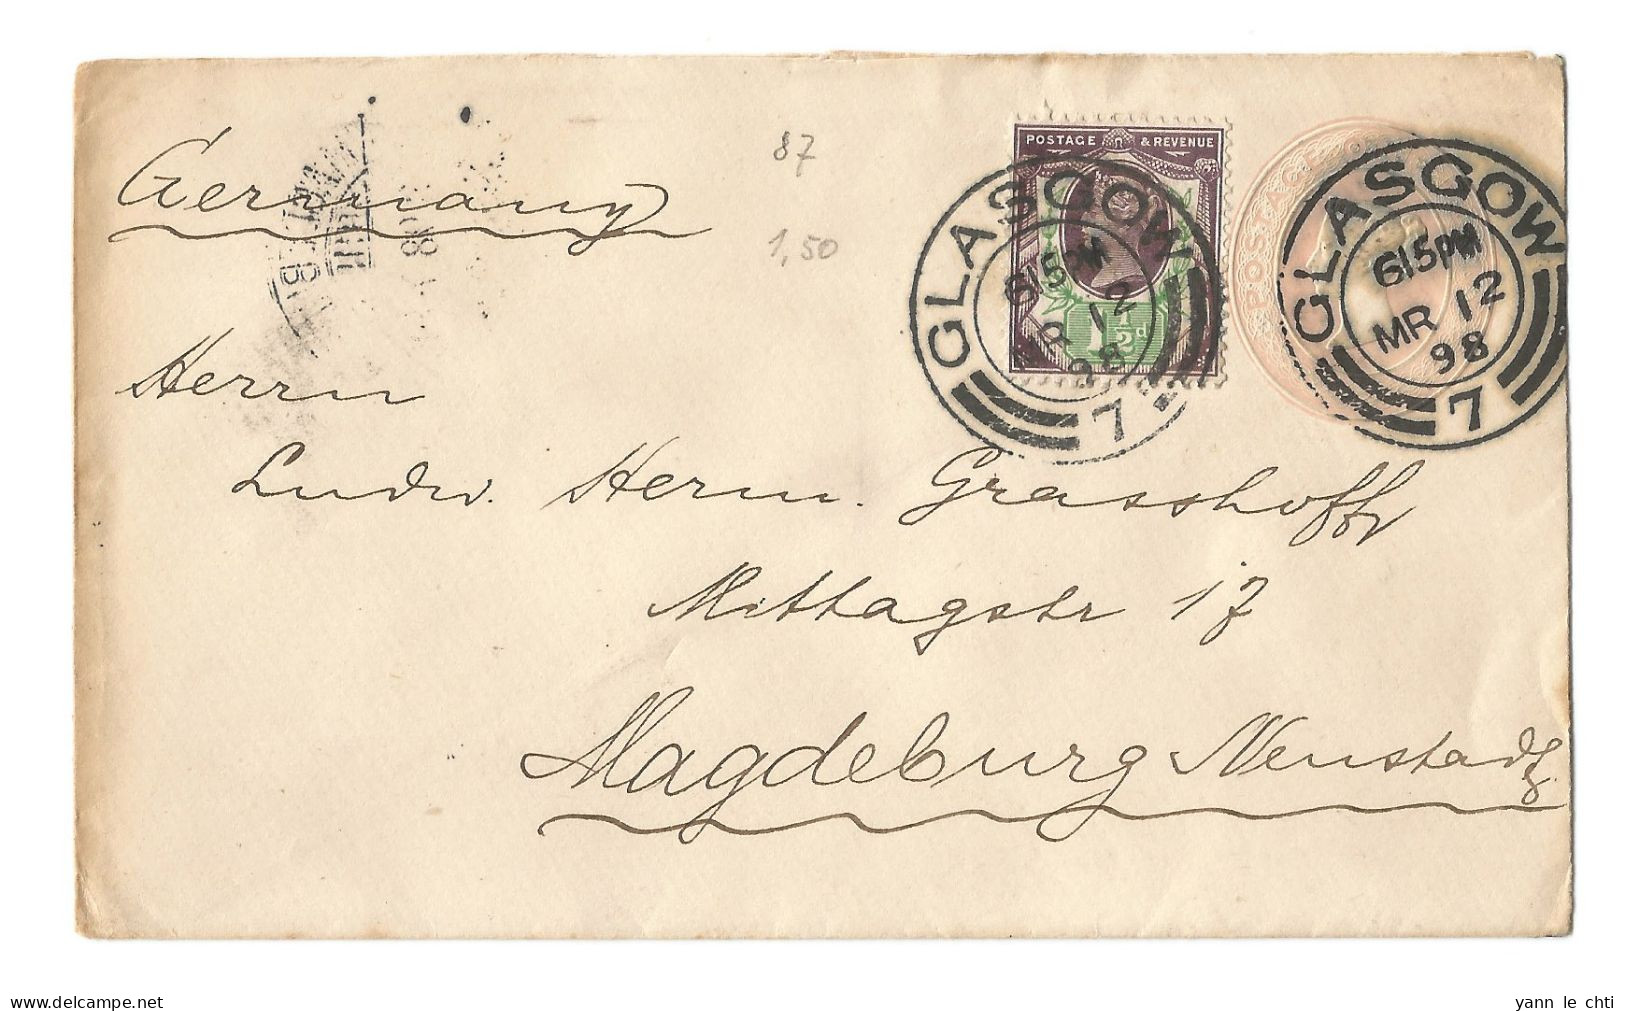 Germany
87
1,50
POSTAGE & REVENUE
1½d
GLASGOW
615PM
MR 12
98
7
POSTAGE
GLASGOW
615PM
MR 12
98
7
Herrn
Ludw. Herm. Grasshoff
Mittagstr 17
Magdeburg Neustadt
www.delcampe.net
yann le chti